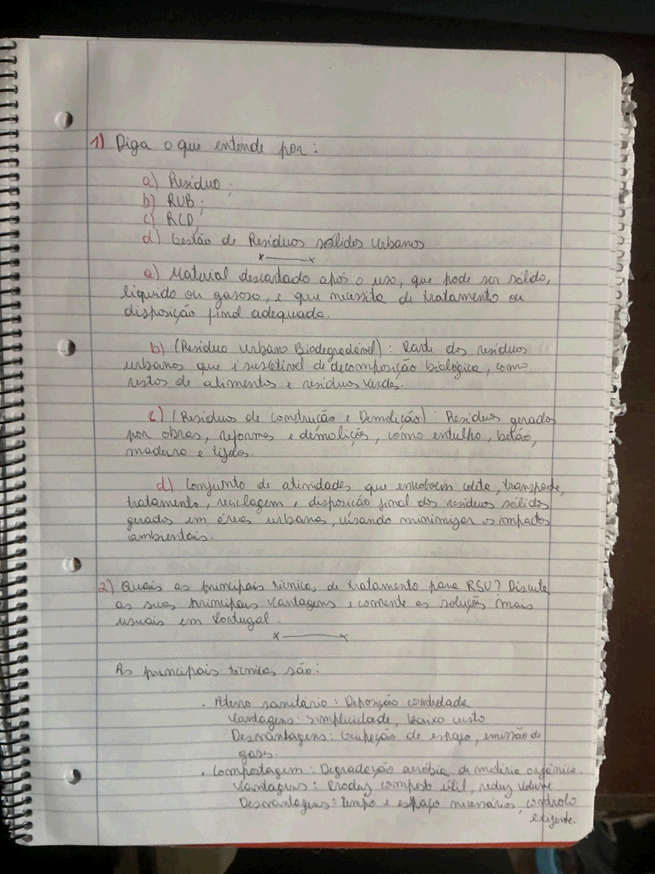 1) Diga o que entende por:
a) Resíduo;
b) RUB;
c) RCD;
d) Gestão de Resíduos sólidos urbanos
a) Material descartado após o uso, que pode ser sólido,
líquido ou gasoso, e que necessita de tratamento ou
disposição final adequada.
b) (Resíduo Urbano Biodegradável): Parte dos resíduos
urbanos que é suscetível de decomposição biológica, como
restos de alimentos e resíduos verdes.
c) (Resíduos de Construção e Demolição): Resíduos gerados
por obras, reformas e demolições, como entulho, betão,
madeira e tijolos.
d) Conjunto de atividades que envolvem coleta, transporte,
tratamento, reciclagem e disposição final dos resíduos sólidos
gerados em áreas urbanas, visando minimizar os impactos
ambientais.
2) Quais as principais técnicas de tratamento para RSU? Discuta
as suas principais vantagens e comente as soluções mais
usuais em Portugal.
As principais técnicas são:
. Aterro sanitário: Deposição controlada
Vantagens: Simplicidade, baixo custo
Desvantagens: Ocupação de espaço, emissão de
gases.
. Compostagem: Degradação aeróbia de matéria orgânica.
Vantagens: Produz composto útil, reduz volume
Desvantagens: Tempo e espaço necessários, controlo
exigente.